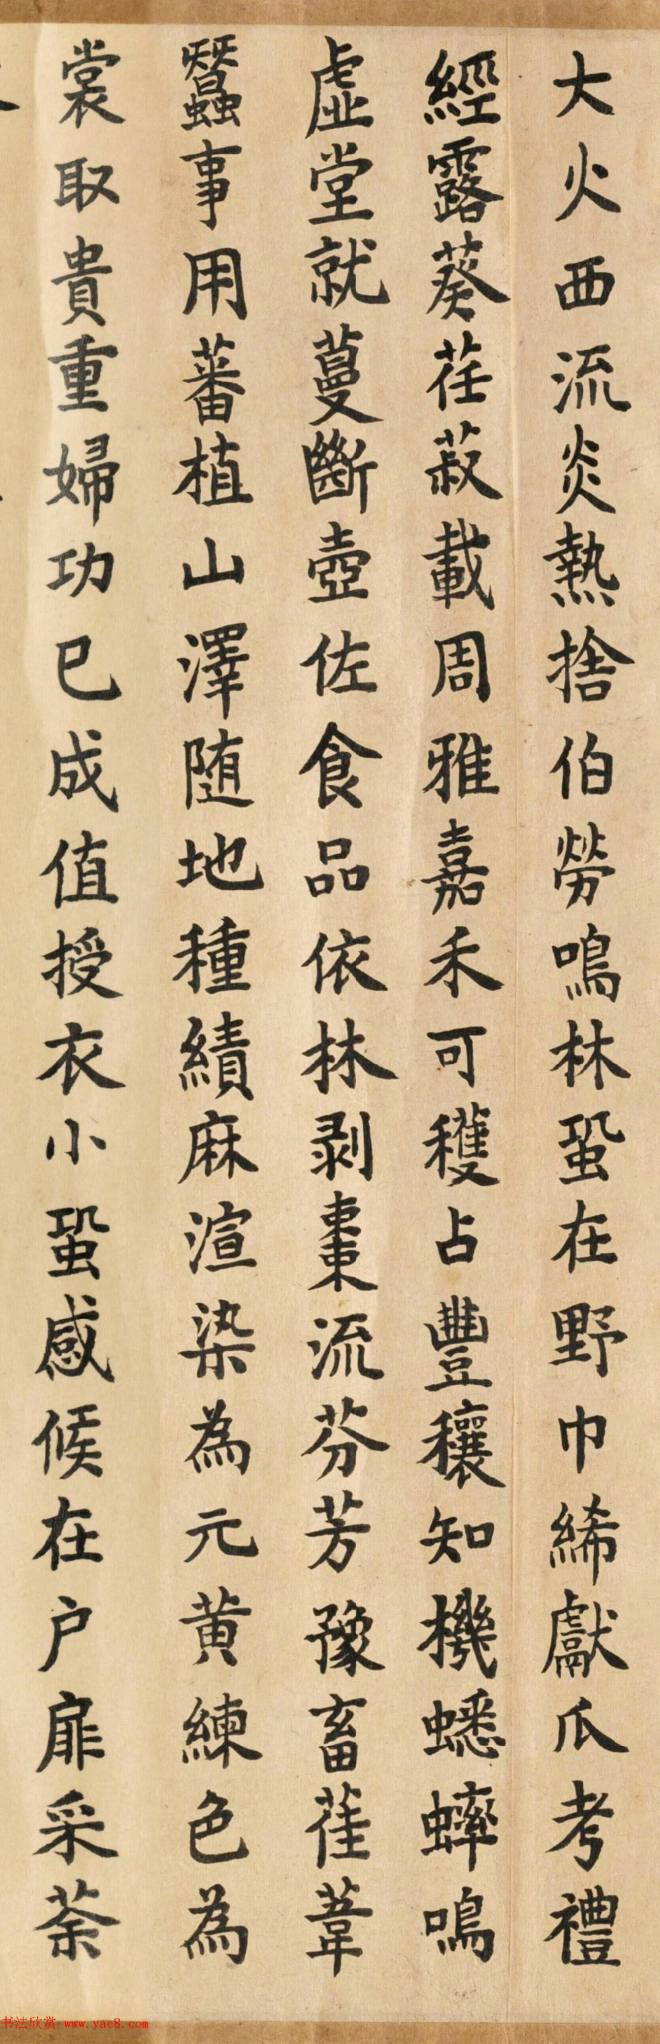 大火西流炎熱捨伯勞鳴林蛩在野巾絺獻瓜考禮
經露葵荏菽載周雅嘉禾可穫占豐穰知機蟋蟀鳴
虛堂就蔓斷壺佐食品依林剥棗流芬芳豫畜萑葦
蠶事用蕃植山澤隨地種績麻渲染為元黃練色為
裳取貴重婦功已成值授衣小蛩感候在户扉采荼
书法欣赏 www.yac8.com